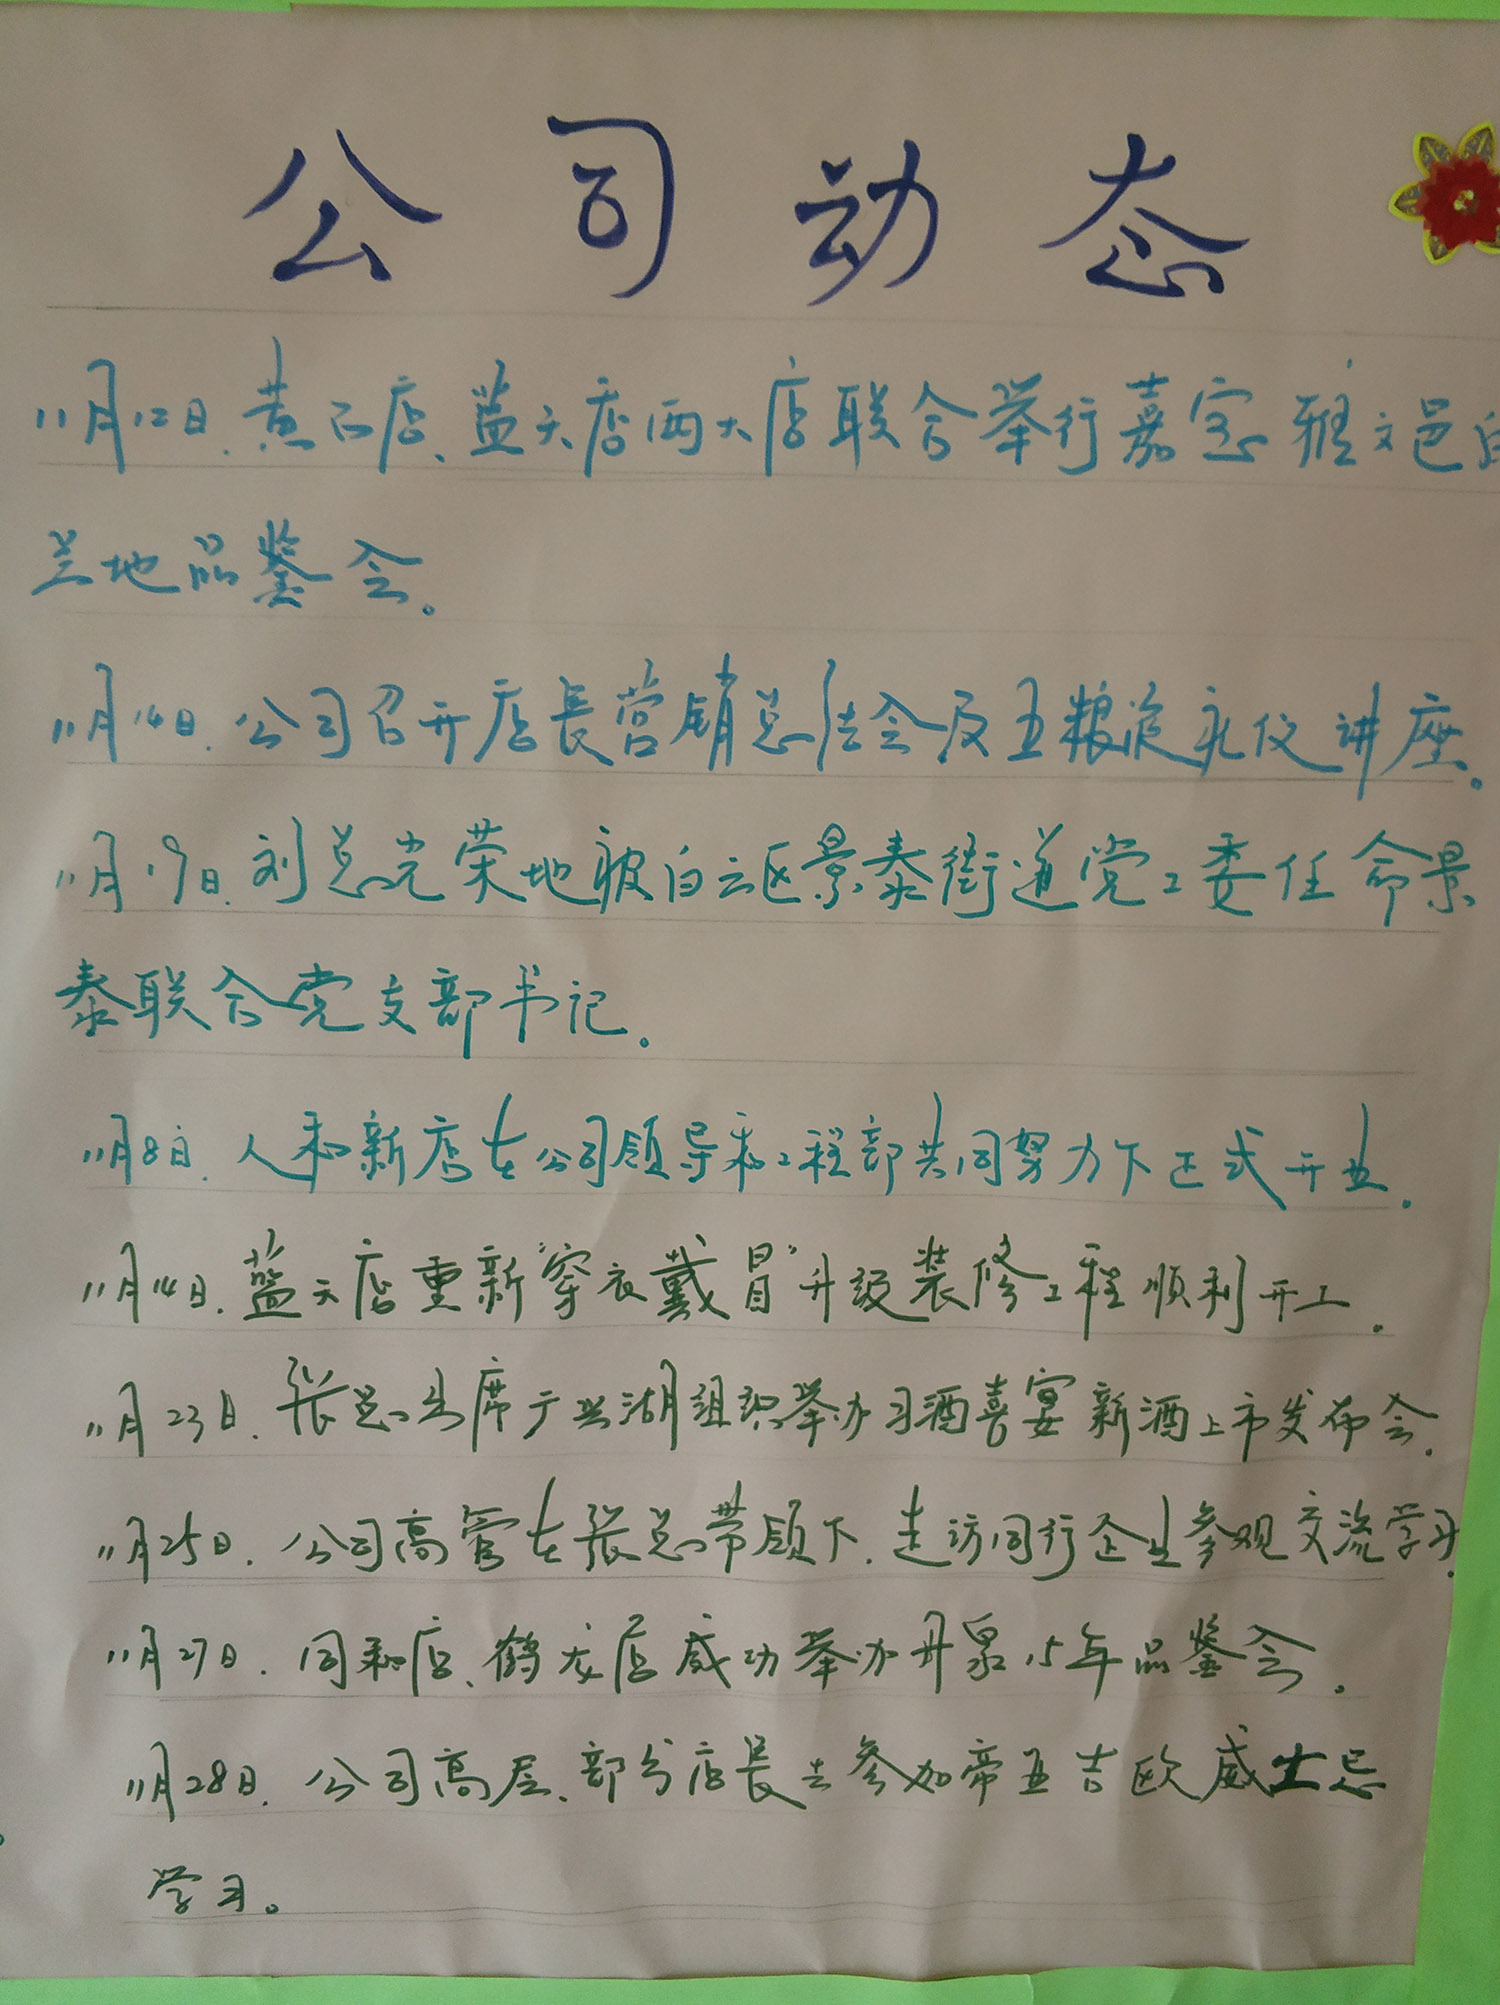 公司动态
11月12日.黄石店、蓝天店两大店联合举行嘉宓雅文邑白
兰地品鉴会。
11月14日.公司召开店長营销总结会及五粮液礼仪讲座。
11月19日.刘总光荣地被白云区景泰街道党工委任命景
泰联合党支部书记.
11月8日.人和新店在公司领导和工程部共同努力下正式开业.
11月14日.蓝天店重新“穿衣戴冒”升级装修工程顺利开工.
11月23日.张总出席广兴湖组织举办习酒喜宴新酒上市发布会.
11月25日.公司高管在张总带领下.走访同行企业参观交流学习.
11月27日.同和店、鹤龙店成功举办丹泉15年品鉴会。
11月28日.公司高层、部分店長去参加帝亚吉欧威士忌
学习。